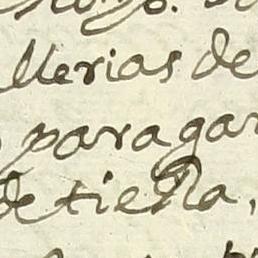 llerias de
para gar
de tierra,